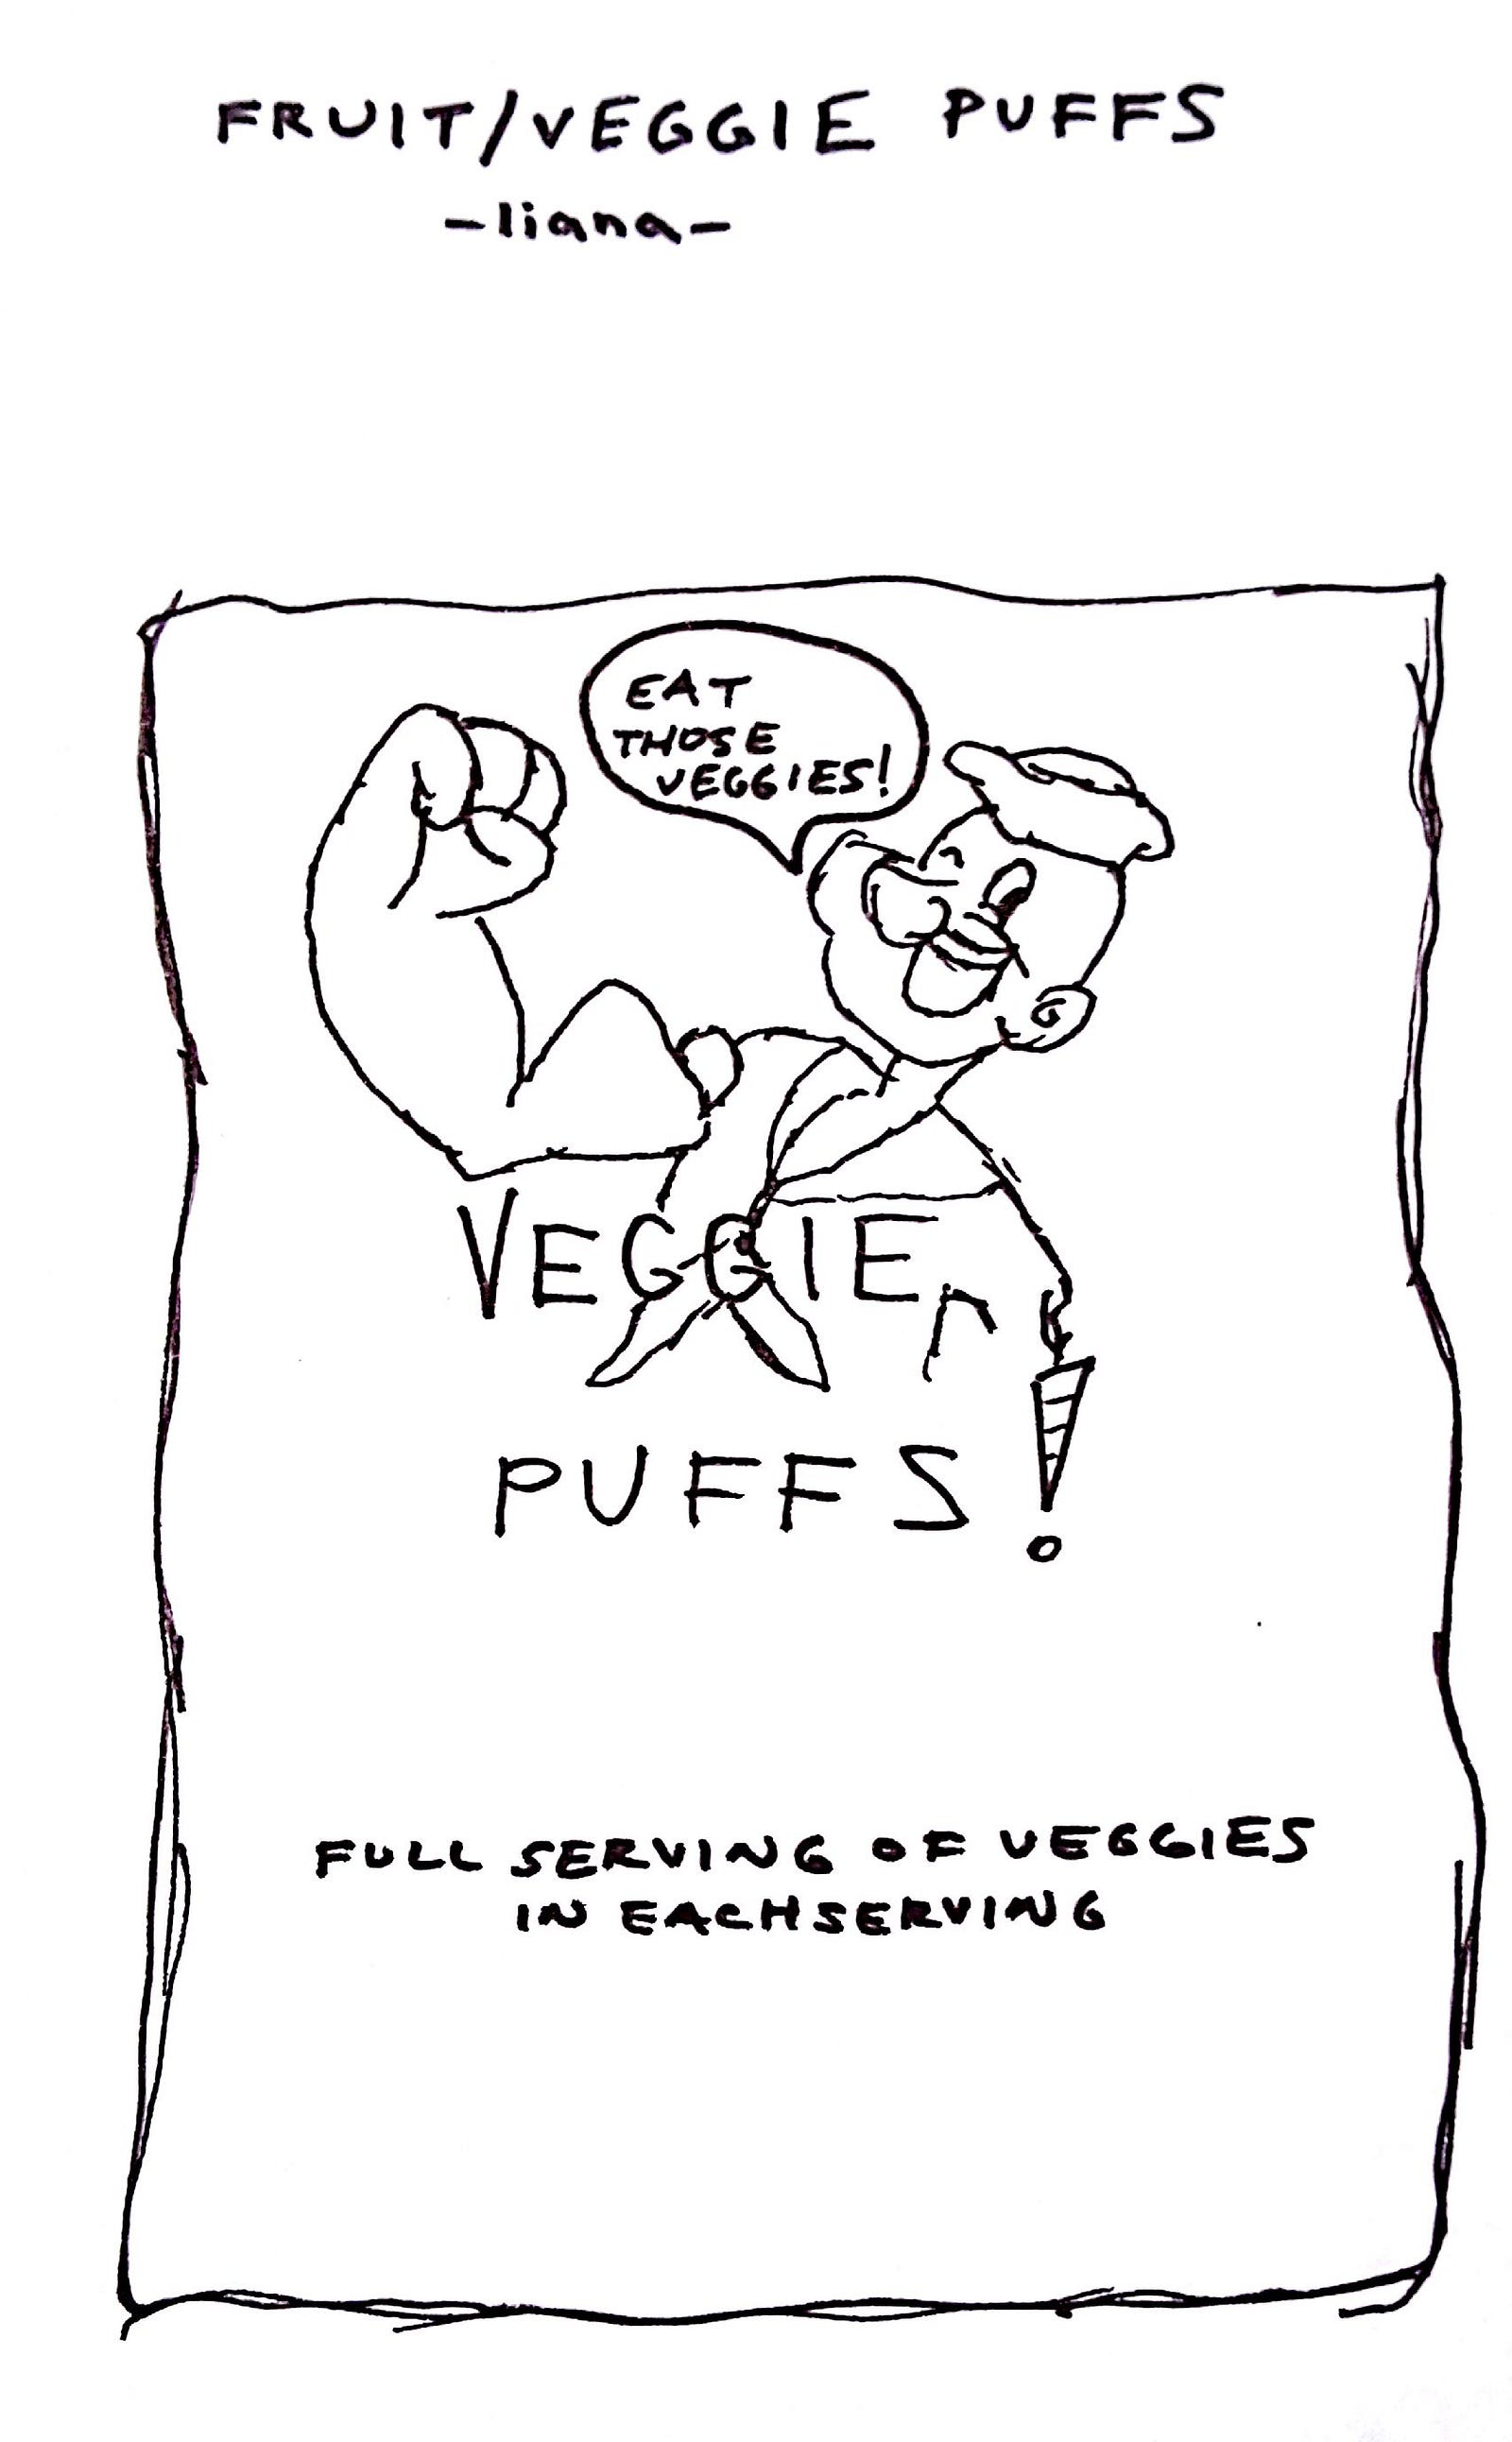 FRUIT/VEGGIE PUFFS
-liana-
EAT
THOSE
VEGGIES!
VEGGIE
PUFFS!
FULL SERVING OF VEGGIES
IN EACH SERVING